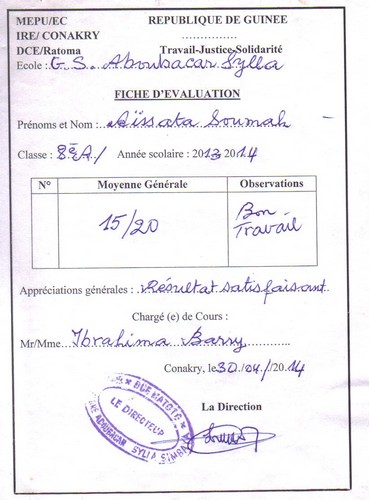 MEPU/EC REPUBLIQUE DE GUINEE
IRE/ CONAKRY ...............
DCE/Ratoma Travail-Justice-Solidarité
Ecole : G. S. Aboubacar Sylla
FICHE D'EVALUATION
Prénoms et Nom : Aïssata Soumah
Classe : 8è A/ Année scolaire : 2013 2014
N° Moyenne Générale Observations
15/20 Bon
Travail
Appréciations générales : Résultat satisfaisant.
Chargé (e) de Cours :
Mr/Mme...Ibrahima Barry............
Conakry, le 30/04/2014
La Direction
LE DIRECTEUR
SYLLA